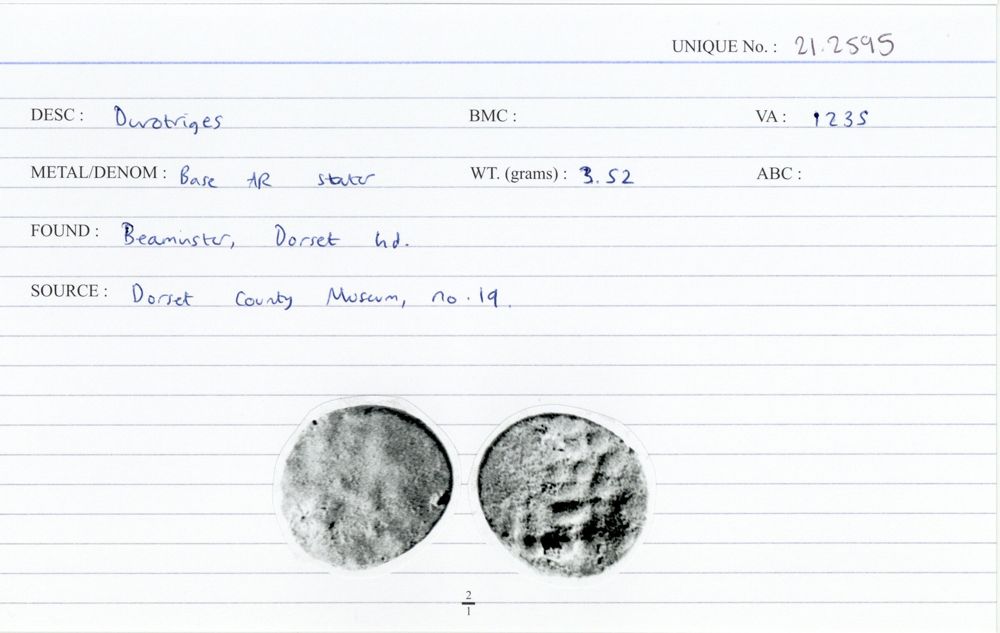 UNIQUE No. : 21.2595
DESC : Durotriges BMC : VA : 1235
METAL/DENOM : Base AR stater WT. (grams) : 3.52 ABC :
FOUND : Beaminster, Dorset hd.
SOURCE : Dorset County Museum, no. 19.
2
1